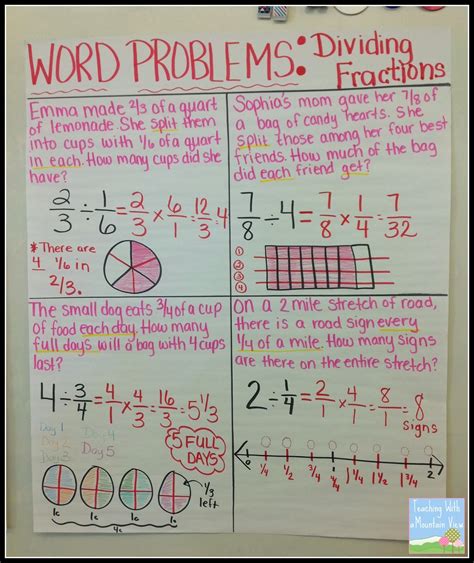 WORD PROBLEMS: Dividing
Fractions
Emma made 2/3 of a quart
of lemonade. She split them
into cups with 1/6 of a quart
in each. How many cups did she
have?
2/3 ÷ 1/6 = 2/3 × 6/1 = 12/3 = 4
* There are
4 1/6 in
2/3.
Sophia's mom gave her 7/8 of
a bag of candy hearts. She
split those among her four best
friends. How much of the bag
did each friend get?
7/8 ÷ 4 = 7/8 × 1/4 = 7/32
1
2
3
4
The small dog eats 3/4 of a cup
of food each day. How many
full days will a bag with 4 cups
last?
4 ÷ 3/4 = 4/1 × 4/3 = 16/3 = 5 1/3
Day 1 Day 4
Day 2 Day 5
Day 3
5 FULL
DAYS
1/3
left
1c 1c 1c 1c
4c
on a 2 mile stretch of road,
there is a road sign every
1/4 of a mile. How many signs
are there on the entire stretch?
2 ÷ 1/4 = 2/1 × 4/1 = 8/1 = 8
signs
0 1/4 1/2 3/4 1 1 1/4 1 1/2 1 3/4 2
Teaching With
a Mountain View